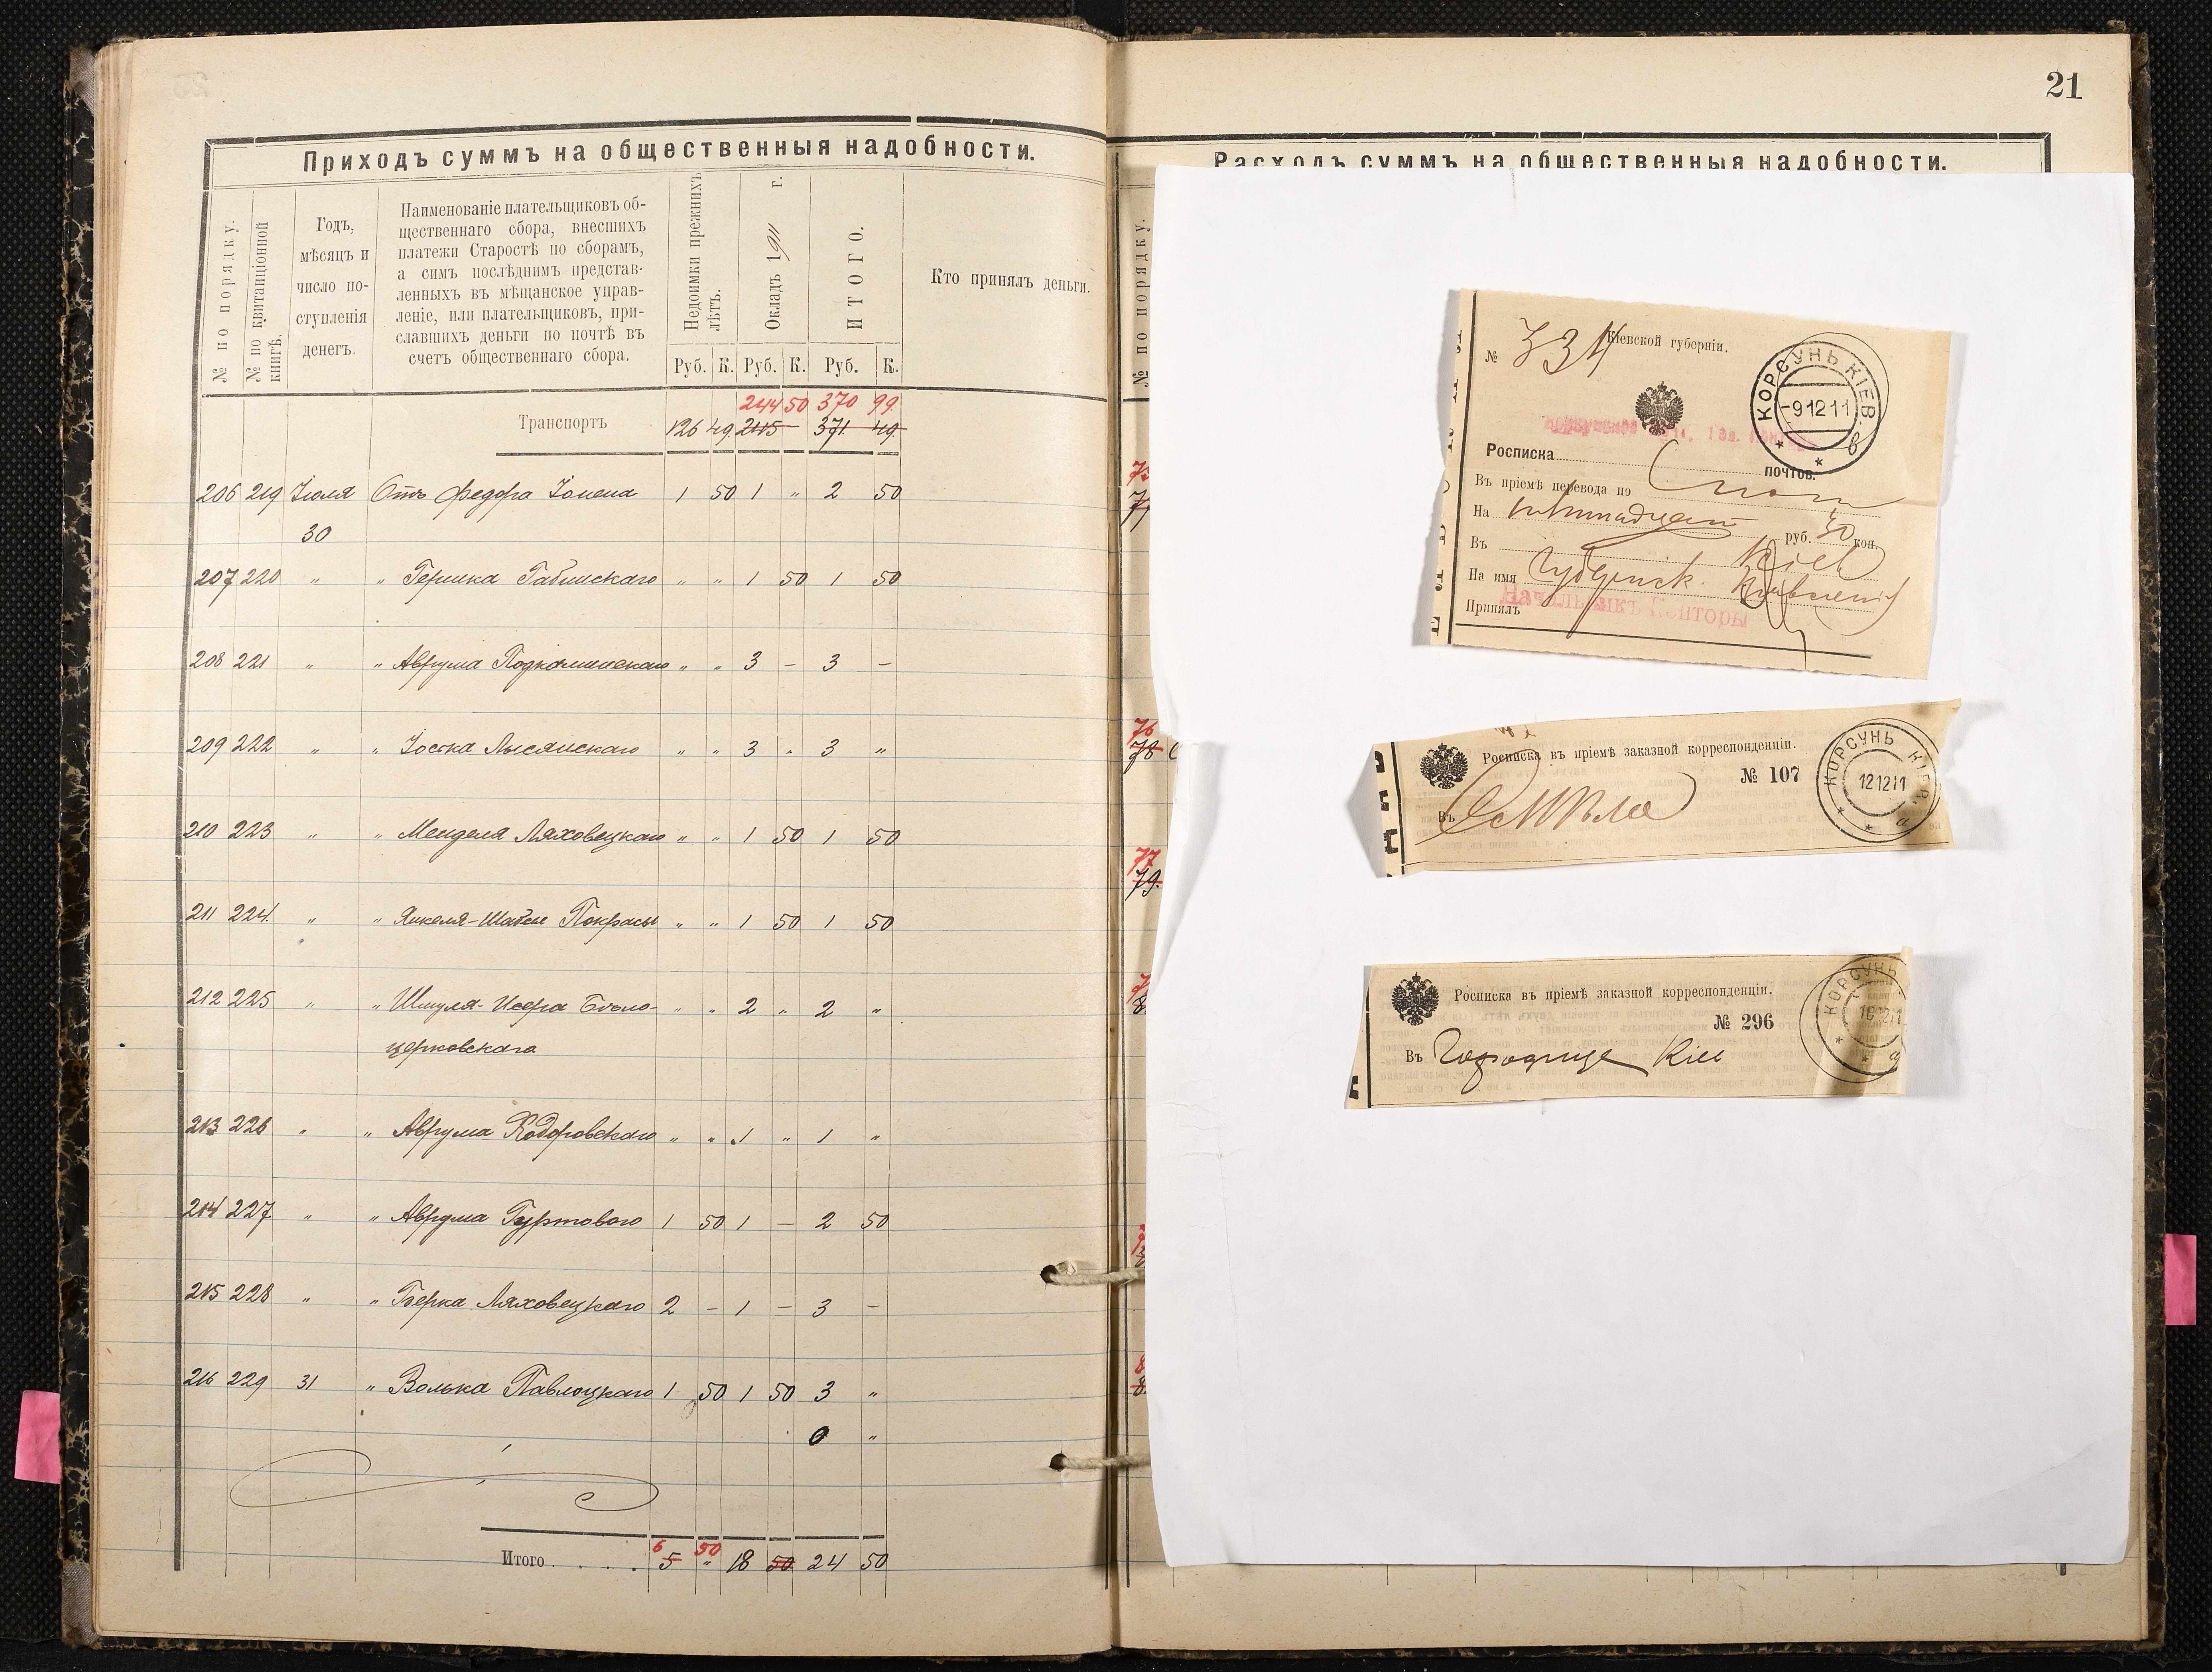 21
Приходъ суммъ на общественныя надобности.
№ по порядку.
№ по квитанціонной книгѣ.
Годъ,
мѣсяцъ и
число по-
ступленія
денегъ.
Наименованіе плательщиковъ об-
щественнаго сбора, внесшихъ
платежи Старостѣ по сборамъ,
а симъ послѣднимъ представ-
ленныхъ въ мѣщанское управ-
леніе, или плательщиковъ, при-
славшихъ деньги по почтѣ въ
счетъ общественнаго сбора.
Недоимки прежнихъ лѣтъ.
Окладъ 1911 г.
ИТОГО.
Кто принялъ деньги.
Руб. К. Руб. К. Руб. К.
244 50 370 99
Транспортъ 126 49 245 — 371 49
206 219 Іюля Отъ Федора 1 50 1 " 2 50
30
207 220 " " Гершка " " 1 50 1 50
208 221 " " Аврума " " 3 – 3 –
209 222 " " Іоська Лысянскаго " " 3 " 3 "
210 223 " " Менделя Ляховецкаго " " 1 50 1 50
211 224 " " Янкеля-Шабсы Покрасы " " 1 50 1 50
212 225 " " Шмуля-Исера Бѣло- " " 2 " 2 "
церковскаго
213 226 " " Аврума " " 1 " 1 "
214 227 " " Аврума Гуртового 1 50 1 – 2 50
215 228 " " Берка Ляховецкаго 2 – 1 – 3 –
216 229 31 " Волька Павлоцкаго 1 50 1 50 3 "
0 "
6 50
Итого . . . . . 5 " 18 50 24 50
Расходъ суммъ на общественныя надобности.
№ по порядку.
76
78
77
79.
Кіевской губерніи.
№ 334
КОРСУНЬ КІЕВ.
-9 12 11
в
Росписка
почтов.
Въ пріемѣ перевода по
На руб. 50 коп.
Въ Кіевъ
На имя Губернск.
Принялъ
Начальникъ Конторы
Росписка въ пріемѣ заказной корреспонденціи.
№ 107
Въ Смѣла
КОРСУНЬ КІЕВ.
12 12 11
а
Росписка въ пріемѣ заказной корреспонденціи.
№ 296
Въ Городище Кіев
КОРСУНЬ
а